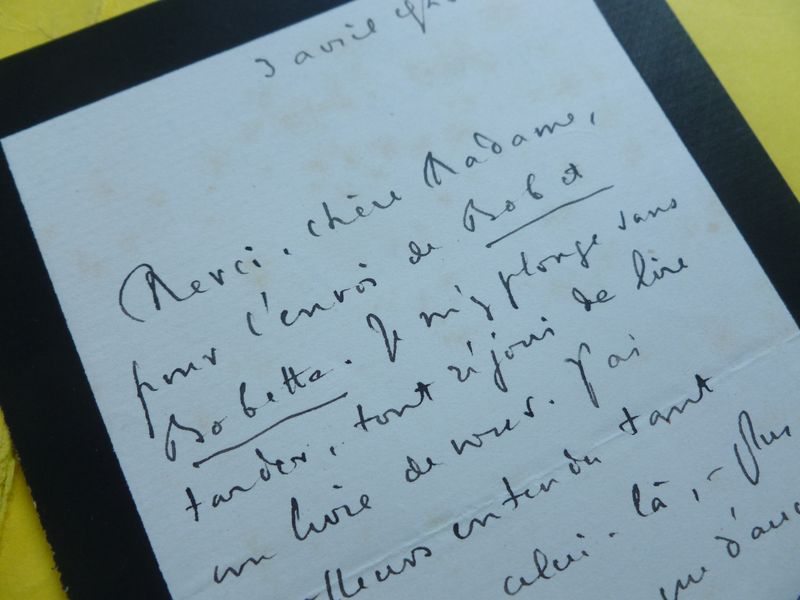 3 avril
Merci, chère Madame,
pour l'envoi de Bob et
Bobette. Je m'y plonge sans
tarder, tout réjoui de lire
un livre de vous. J'ai
entendu tant
celui-là, - plus
que d'auc